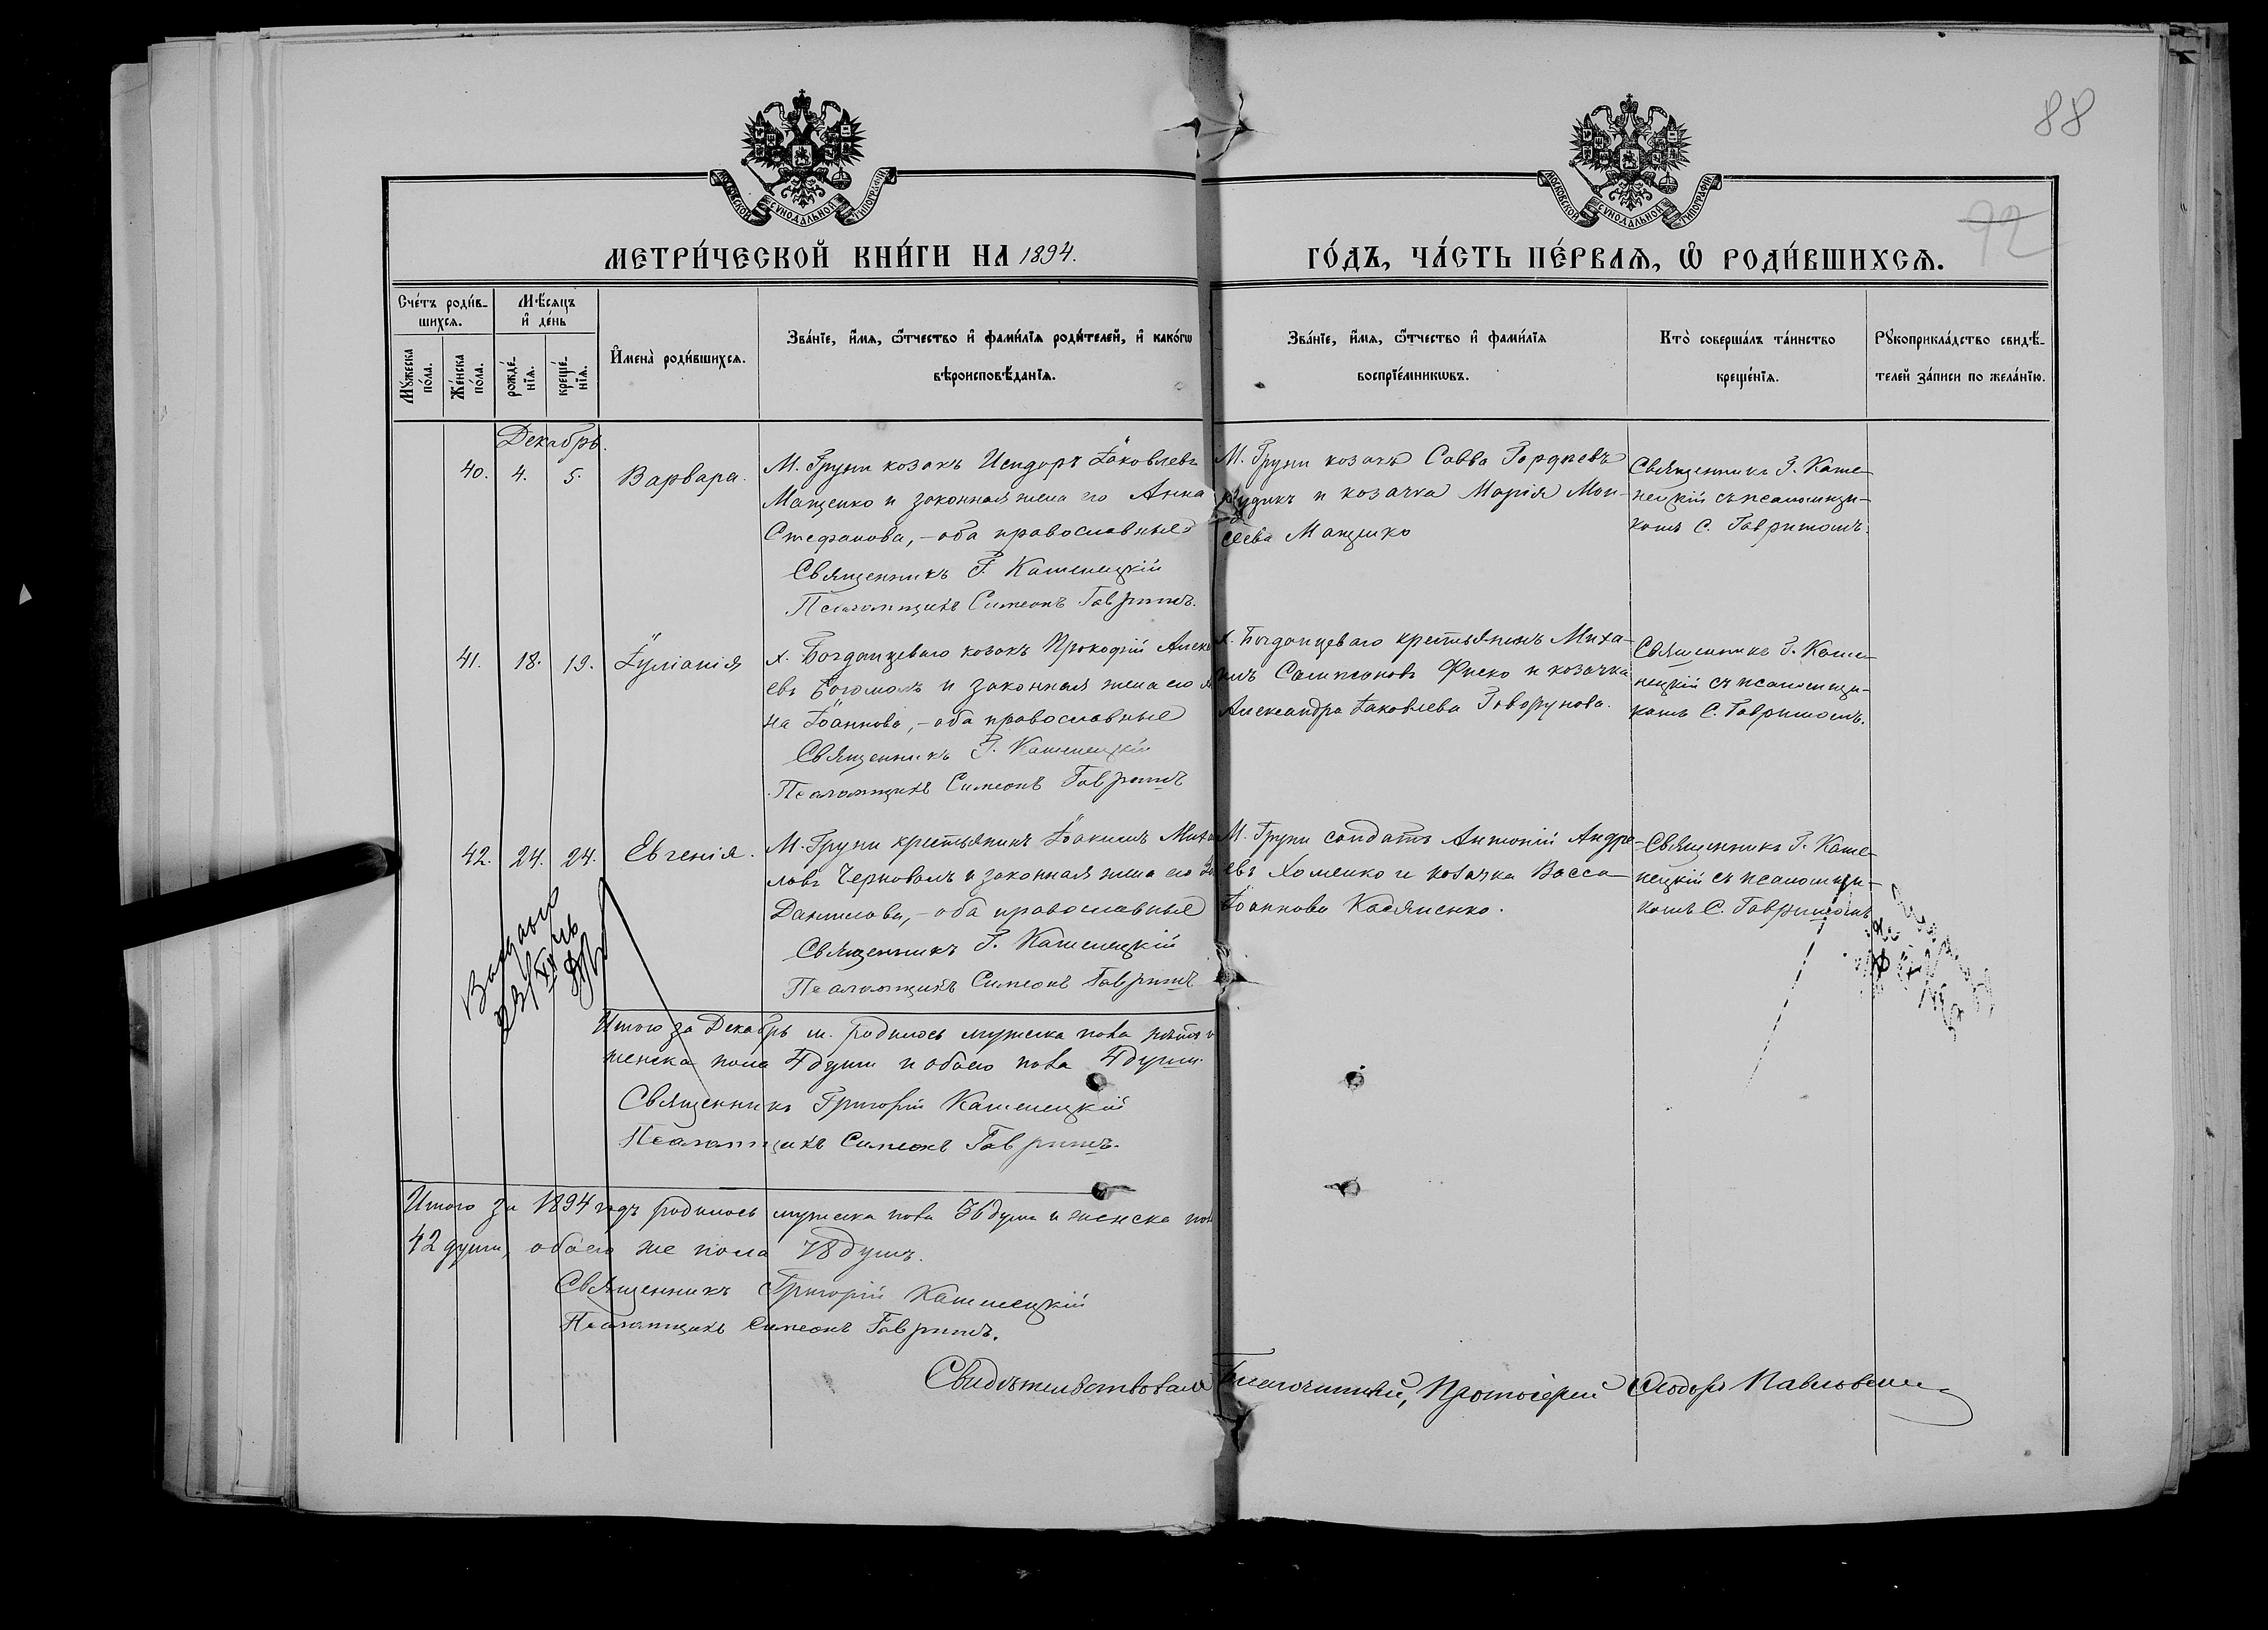 88
92
МОСКОВСКОЙ СУНОДАЛЬНОЙ ТИПОГРАФІИ
МОСКОВСКОЙ СУНОДАЛЬНОЙ ТИПОГРАФІИ
МЕТРИ́ЧЕСКОЙ КНИ́ГИ НА 1894.
ГО́ДЪ, ЧА́СТЬ ПЕ́РВАѦ, Ѡ РОДИ́ВШИХСѦ.
Сче́тъ роди́в-
шихсѧ.
Мѣ́сѧцъ
и де́нь
Мꙋ́жеска
по́ла.
Же́нска
по́ла.
рожде́-
нїѧ.
креще́-
нїѧ.
И҆мена̀ роди́вшихсѧ.
Зва́нїе, и҆́мѧ, ѻ҆́тчество и҆ фами́лїѧ роди́телей, и҆ како́гѡ
вѣроисповѣ́данїѧ.
Зва́нїе, и҆́мѧ, ѻ҆́тчество и҆ фами́лїѧ
воспрїе́мникѡвъ.
Кто̀ соверша́лъ та́инство
креще́нїѧ.
Рꙋкоприкла́дство свидѣ́-
телей за́писи по жела́нїю.
Декабрь.
40. 4. 5. Варвара.
М. Груни козакъ Исидоръ Іаковлевъ
Мащенко и законная жена его Анна
Стефанова, – оба православные
Священникъ Г. Каменецкій
Псаломщикъ Симеонъ Гавришъ.
М. Груни козакъ Савва Гордѣевъ
и козачка Марія Мои-
сеева Мащенко
Священникъ Г. Каме-
нецкій съ псаломщи-
комъ С. Гавришомъ.
41. 18. 19. Іуліанія
х. Богданцеваго козакъ Прокофій Алекс
евъ и законная жена его
на Іоаннова, – оба православные
Священникъ Г. Каменецкій
Псаломщикъ Симеонъ Гавришъ
х. Богданцеваго крестьянинъ Миха-
илъ Сампсоновъ Фиско и козачка
Александра Іаковлева Говорунова.
Священникъ Г. Каме-
нецкій съ псаломщи-
комъ С. Гавришомъ.
42. 24. 24. Евгенія.
М. Груни крестьянинъ Іоакимъ Миха
ловъ Черноволъ и законная жена его
Данилова, – оба православные
Священникъ Г. Каменецкій
Псаломщикъ Симеонъ Гавришъ
М. Груни солдатъ Антоній Андре-
евъ Хоменко и козачка Васса
Іоаннова Касяненко.
Священникъ Г. Каме-
нецкій съ псаломщи-
комъ С. Гавришомъ
Итого за Декабрь м. родилось мужеска пола
женска пола 4 души и обоего пола 4 души.
Священникъ Григорій Каменецкій
Псаломщикъ Симеонъ Гавришъ.
Итого за 1894 годъ родилось мужеска пола 36 душъ и женска пола
42 души, обоего же пола 78 душъ.
Священникъ Григорій Каменецкій
Псаломщикъ Симеонъ Гавришъ.
Свидѣтельствовалъ Благочинный, Протоіерей Ѳеодоръ Павловскій